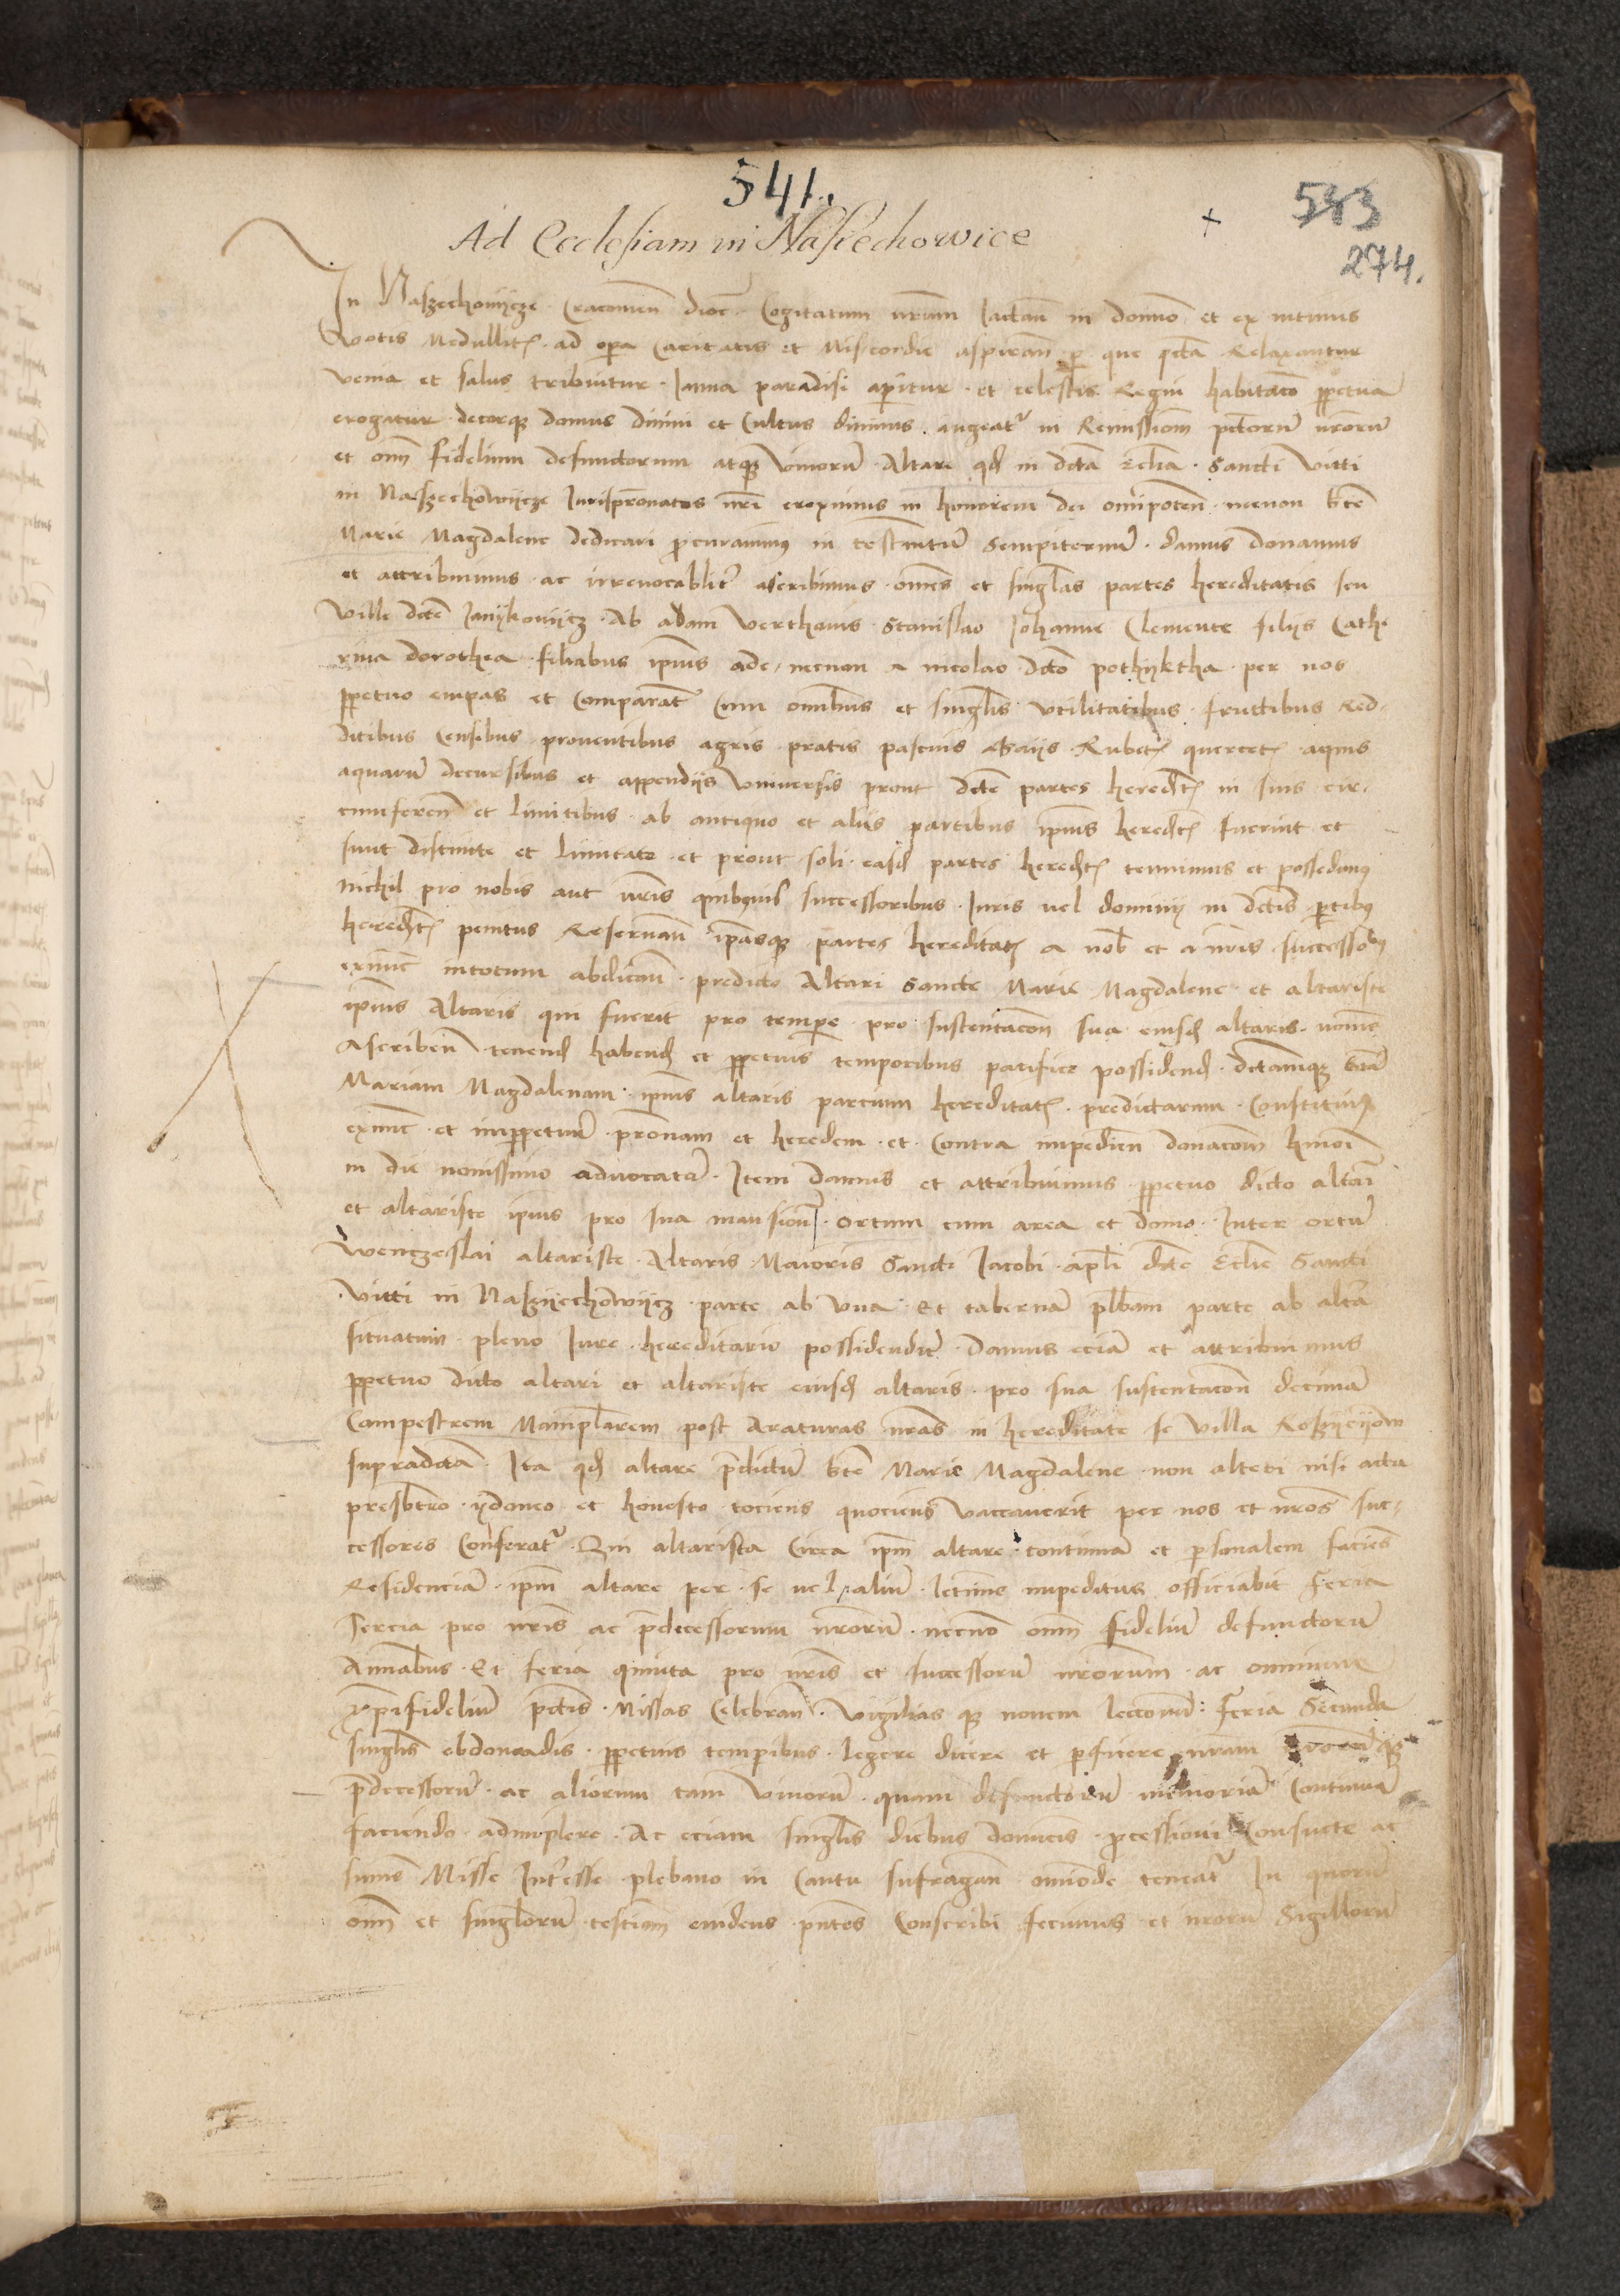 541.
583
274.
Ad Ecclesiam in Nasiechowice
In Naszechowijcze Cracouien̄ dioc̄ Cogitatum nr̄um Jactan̄ in domno et ex intimis
Votis Medullit̉ ad opera Caritatis et Mis̄cordie aspiran̄ per que pct̄a Relaxantur
venia et salus tribuitur Janua paradisi aperitur et celestis Regni habitaco ꝑpetua
erogatur decorque domus diuini et Cultus diuinus augeat̉ in Remissiom pct̄orum nr̄orum
et om̄ fidelium defunctorum atque viuorum Altare qd̄ in dcta Ecclia Sancti Vitti
in Naszechowijcze Jurisprōnatus nr̄i ereximus in honorem dei om̄ipoten̄ necnon bt̄e
Marie Magdalene dedicari procurauimus in testmtum sempiternum damus donamus
et attribuimus ac irreuocablit̉ ascribimus omēs et singl̄as partes hereditatis seu
ville dcte Janijkowijcz Ab adam Verthonis Stanislao Johanne Clemente filijs Cathe
rina dorothea filiabus ipīus ade necnon a nicolao dcto pothijktha per nos
ꝑpetuo emptas et Comparat̄ Cum omnibus et singl̄is vtilitatibus fructibus Red-
ditibus Censibus prouentibus agris pratis pascuis Gaijs Rubet̉ quercet̉ aquis
aquarum decursibus et appendijs vniuersis prout dcte partes heredit̉ in suis cir-
cumferen̄ et limitibus ab antiquo et alijs partibus ipīus heredit̉ fuerint et
sunt distincte et limitate et prout soli easd̄ partes heredit̉ tenuimus et possedimus
nichil pro nobis aut nr̄is quibusuis successoribus Juris uel dominij in dctis partibus
heredit̉ penitus Reseruan̄ ipasque partes hereditat̉ a nob̄ et a nr̄is successoribus
exnunc intotum abdican̄ predicto Altari Sancte Marie Magdalene et altariste
ipīus Altaris qui fuerit pro tempore pro sustentacon̄ sua eiusd̄ altaris nomine
Ascriben̄ tenend̄ habend̄ et ꝑpetuis temporibus pacifice possidend̄ dctamque btam
Mariam Magdalenam ipīus altaris parcium hereditat̉ predictarum Constituim̉
exnunc et imperpetuum pronam et heredem et Contra impedien̄ donacom̄ hmōi
in die nouissimo aduocatam Item damus et attribuimus ꝑpetuo dicto altari
et altariste ipīus pro sua mansione Ortum cum area et domo Inter ortum
Wenczeslai altariste Altaris Maioris Sancti Jacobi apl̄i dcte Ecclie Sancti
Vitti in Naszijechowijcz parte ab vna Et tabernam plb̄am parte ab altera
situatum pleno Jure hereditario possidendum Damus eciam et attribuimus
ꝑpetuo dicto altari et altariste eiusd̄ altaris pro sua sustentacon̄ decimam
Campestrem Manipl̄arem post Araturas nr̄as in hereditate seu villa Roszijeijow
supradcta Ita qd̄ altare p̄dictum bt̄e Marie Magdalene non alteri nisi actu
presbtero ydoneo et honesto tociens quociens vaccauerit per nos et nr̄os suc-
cessores Conferat̉ Qui altarista Circa ipm̄ altare continuam et personalem faciens
Residenciam ipm̄ altare per se uel alium letime impeditus officiabit feria
Tercia pro nr̄is ac p̄decessorum nr̄orum necnō om̄ fidelium defunctorum
Animabus Et feria quinta pro nr̄is et successorum nr̄orum ac omnium
xp̄ifidelium pctis Missas Celebran̄ Vigiliasque nouem leccionum feria Secunda
singl̄is ebdomadis ꝑpetuis temporibus legere dicere et perficere nr̄am
p̄decessorum ac aliorum tam viuorum quam defunctorum memoriam Continuam
faciendo adimplere Ac eciam singl̄is diebus donicis processioni Consuete ac
sume Misse Interesse plebano in Cantu sufragan̄ omiode teneat̉ In quorum
om̄ et singl̄orum testim̄ euidens pn̄tes Conscribi fecimus et nr̄orum Sigillorum